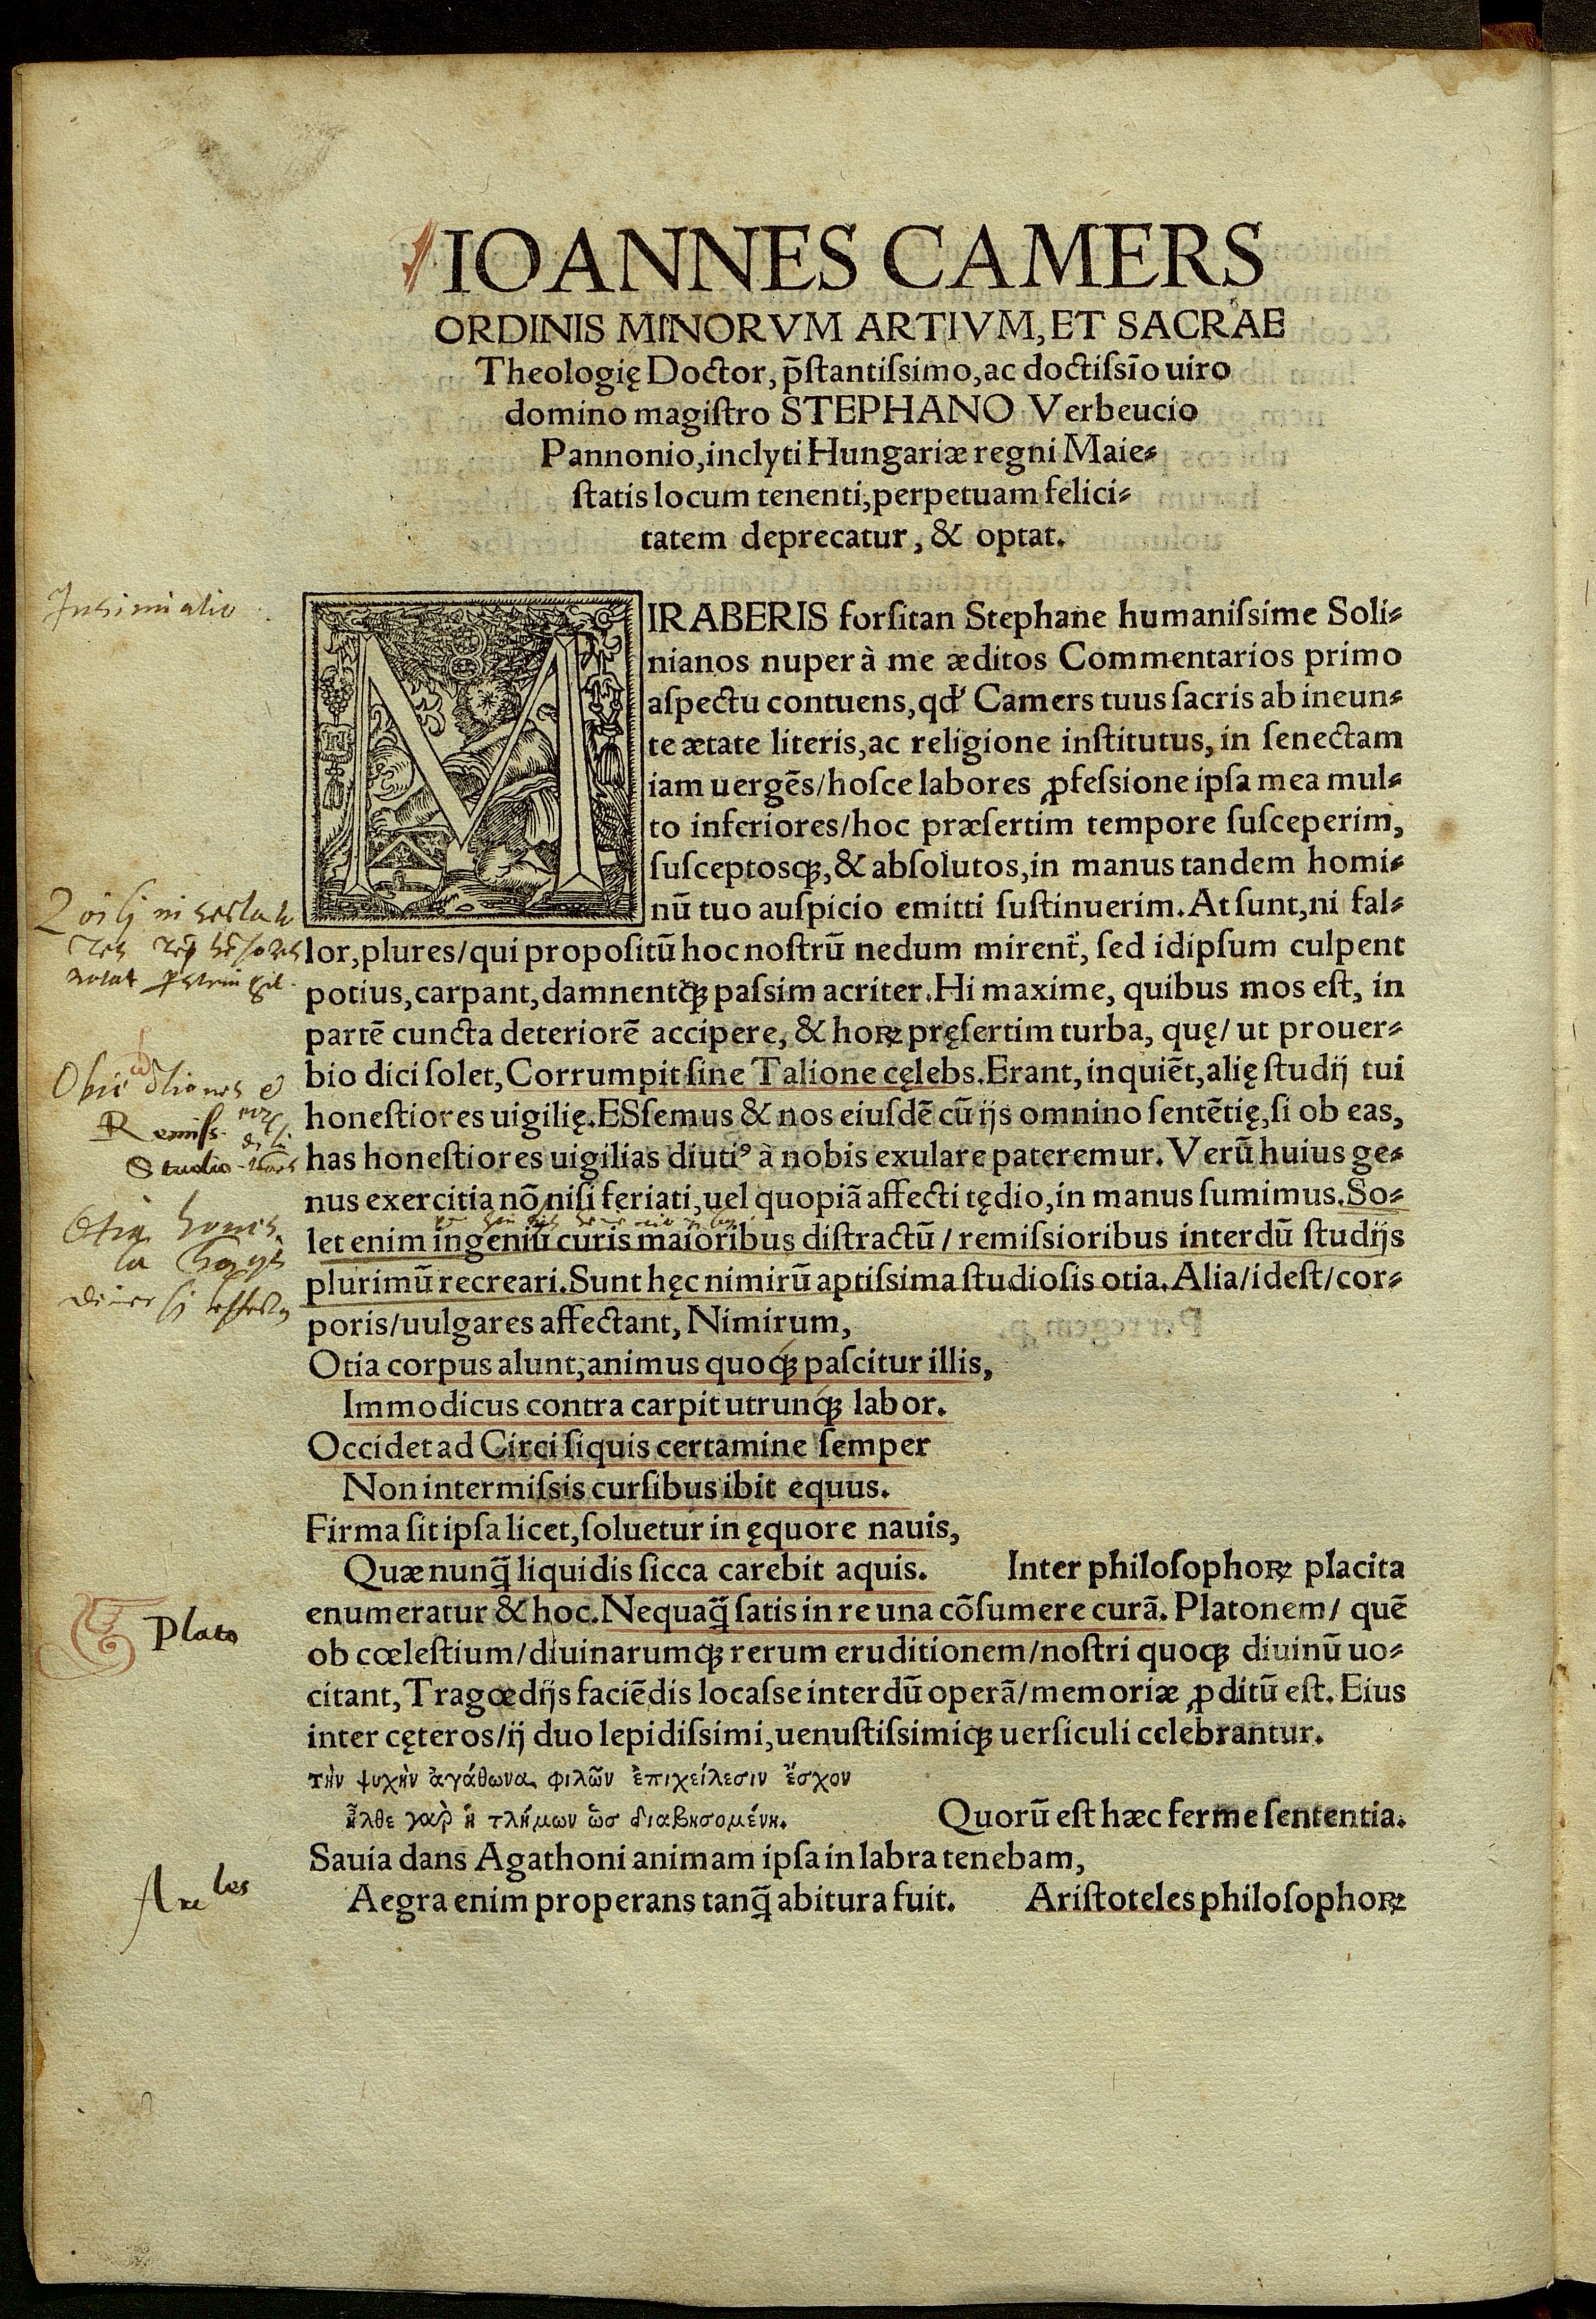 IOANNES CAMERS
ORDINIS MINORVM ARTIVM, ET SACRAE
Theologię Doctor, p̄ſtantiſsimo, ac doctiſsīo uiro
domino magiſtro STEPHANO Verbeucio
Pannonio, inclyti Hungariæ regni Maie⸗
ſtatis locum tenenti, perpetuam felici⸗
tatem deprecatur, & optat.
MIRABERIS forſitan Stephane humaniſsime Soli⸗
nianos nuper à me æditos Commentarios primo
aſpectu contuens, qđ Camers tuus ſacris ab ineun⸗
te ætate literis, ac religione inſtitutus, in ſenectam
iam uergēs/hoſce labores ꝓfeſsione ipſa mea mul⸗
to inferiores/hoc præſertim tempore ſuſceperim,
ſuſceptosqꝫ, & abſolutos, in manus tandem homi⸗
nū tuo auſpicio emitti ſuſtinuerim. At ſunt, ni fal⸗
lor, plures/qui propoſitū hoc noſtrū nedum mirent̃, ſed idipſum culpent
potius, carpant, damnentqꝫ paſsim acriter. Hi maxime, quibus mos eſt, in
partē cuncta deteriorē accipere, & hoꝝ pręſertim turba, quę/ut prouer⸗
bio dici ſolet, Corrumpit ſine Talione cęlebs. Erant, inquiēt, alię ſtudij tui
honeſtiores uigilię. ESſemus & nos eiuſdē cū ijs omnino ſentētię, ſi ob eas,
has honeſtiores uigilias diutiꝰ à nobis exulare pateremur. Verū huius ge⸗
nus exercitia nō niſi feriati, uel quopiā affecti tędio, in manus ſumimus. So⸗
let enim ingeniū curis maioribus diſtractū/remiſsioribus interdū ſtudijs
plurimū recreari. Sunt hęc nimirū aptiſsima ſtudioſis otia. Alia/ideſt/cor⸗
poris/uulgares affectant, Nimirum,
Otia corpus alunt, animus quoqꝫ paſcitur illis,
Immodicus contra carpit utrunqꝫ labor.
Occidet ad Circi ſiquis certamine ſemper
Non intermiſsis curſibus ibit equus.
Firma ſit ipſa licet, ſoluetur in ęquore nauis,
Quæ nunq̄ liquidis ſicca carebit aquis. Inter philoſophoꝝ placita
enumeratur & hoc. Nequaq̄ ſatis in re una cōſumere curā. Platonem/ quē
Plato
ob cœleſtium/diuinarumqꝫ rerum eruditionem/noſtri quoqꝫ diuinū uo⸗
citant, Tragœdijs faciēdis locaſse interdū operā/memoriæ ꝓditū eſt. Eius
inter cęteros/ij duo lepidiſsimi, uenuſtiſsimiqꝫ uerſiculi celebrantur.
τὴν ψυχὴν ἀγάθωνα φιλῶν ἐπιχείλεσιν ἔσχον
ἦλθε γαρ̀ ἡ τλήμων ὣσ διαβησομένη. Quorū eſt hæc ferme ſententia.
Sauia dans Agathoni animam ipſa in labra tenebam,
Aegra enim properans tanq̄ abitura fuit. Ariſtoteles philoſophoꝝ